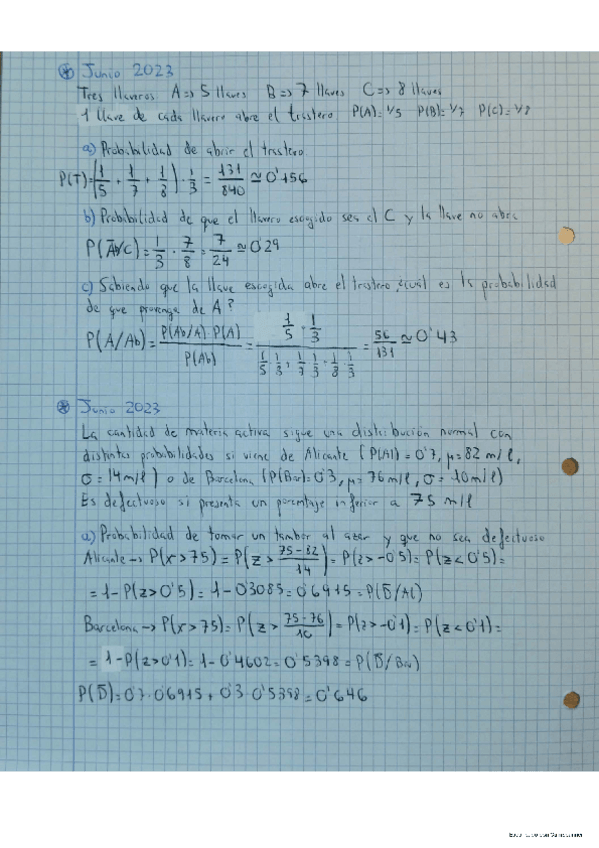 ⊛ Junio 2023
Tres llaveros A => 5 llaves B => 7 llaves C => 8 llaves
1 llave de cada llavero abre el trastero. P(A)= 1/5 P(B)= 1/7 P(C)= 1/8
a) Probabilidad de abrir el trastero.
P(T)=(1/5 + 1/7 + 1/8) · 1/3 = 131/840 ≃ 0'156
b) Probibilidad de que el llavero escogido sea el C y la llave no abra
P(A̅b/C) = 1/3 · 7/8 = 7/24 ≃ 0'29
c) Sabiendo que la llave escogida abre el trastero, ¿cuál es la probabilidad
de que provenga de A?
P(A/Ab) = P(Ab/A)·P(A) / P(Ab) = 1/5 · 1/3 / 1/5 · 1/3 + 1/7 · 1/3 + 1/8 · 1/3 = 56/131 ≃ 0'43
⊛ Junio 2023
La cantidad de materia activa sigue una distribución normal con
distintas probabilidades si viene de Alicante (P(Al) = 0'7, μ=82 m/l,
σ = 14 m/l) o de Barcelona (P(Bar)= 0'3, μ= 76 m/l, σ = 10 m/l)
Es defectuoso si presenta un porcentaje inferior a 75 m/l
a) Probabilidad de tomar un tambor al azar y que no sea defectuoso
Alicante → P(x>75) = P(z > 75-82/14) = P(z>-0'5) = P(z<0'5) =
= 1-P(z>0'5) = 1-0'3085 = 0'6915 = P(D̅/Al)
Barcelona → P(x>75) = P(z > 75-76/10) = P(z>-0'1) = P(z<0'1) =
= 1-P(z>0'1) = 1-0'4602 = 0'5398 = P(D̅/Bar)
P(D̅) = 0'7·0'6915 + 0'3·0'5398 = 0'646